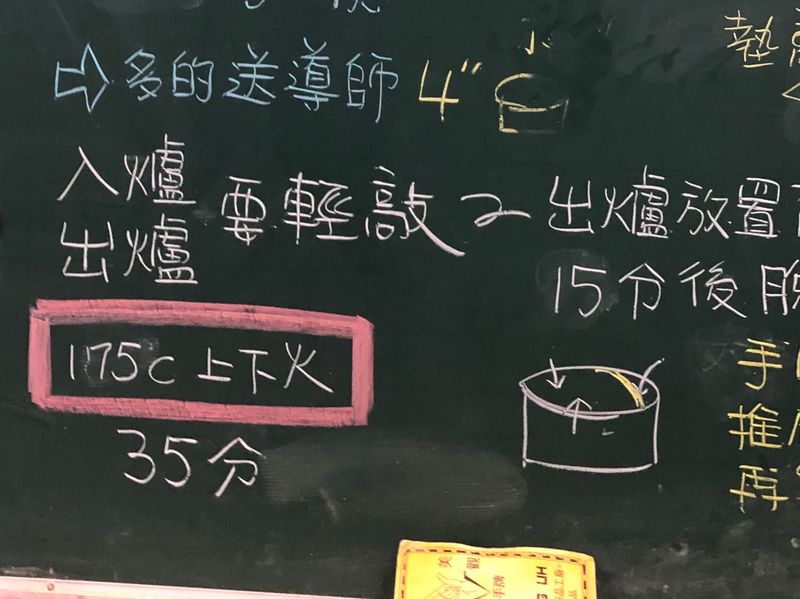 ⇨多的送導師 4"
墊
入爐
出爐
要輕敲2
出爐放置
15分後脫
175C上下火
35分
手
推
再
美觀
手牌